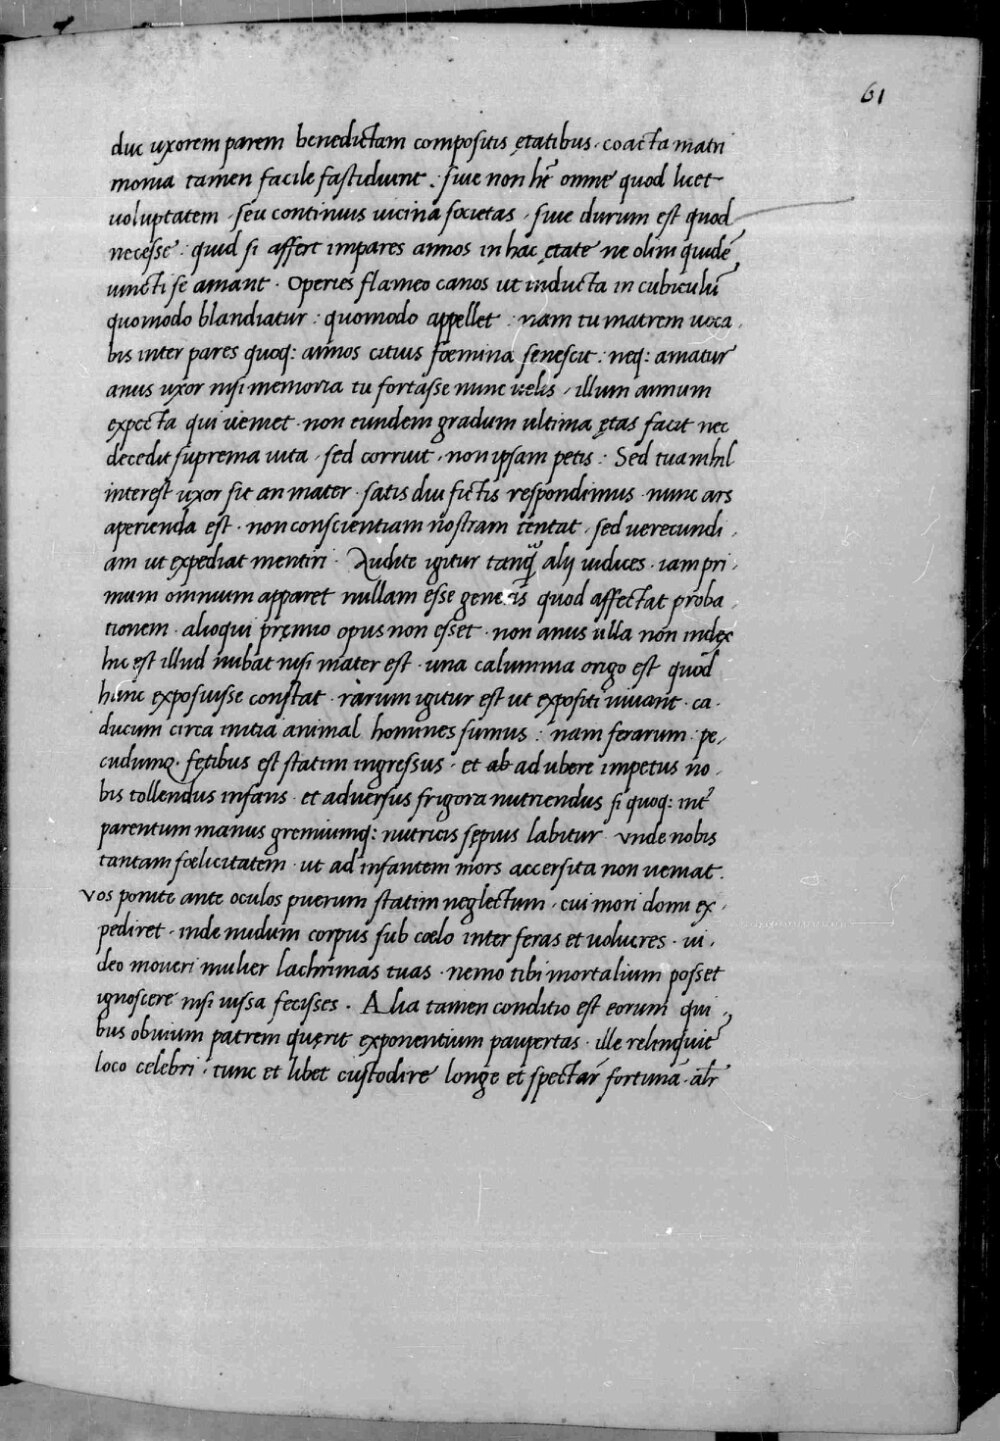 61
duc uxorem parem benedictam compositis ętatibus · coacta matri
monia tamen facile fastidiunt : siue non hēt omne quod licet
uoluptatem · seu continuus uicina societas · siue durum est quod
necesse : quid si affert impares annos in hac ętate ne olim quidē
iuncti se amant · Operies flameo canos ut inducta in cubiculū
quomodo blandiatur : quomodo appellet : nam tu matrem uoca
bis inter pares quoq: annos citius fœmina senescit : neq: amatur
anus uxor nisi memoria tu fortasse nunc uelis · illum annum
expecta qui ueniet · non eundem gradum ultima ętas facit nec
decedit suprema uita · sed corruit · non ipsam petis : Sed tua nihil
interest uxor sit an mater · satis diu fictis respondimus · nunc ars
aperienda est · non conscientiam nostram tentat · sed uerecundi
am ut expediat mentiri · Audite igitur tanq̃ alij iudices · iam pri
mum omnium apparet nullam esse generis quod affectat proba
tionem · alioqui pręmio opus non esset · non anus ulla non index
hic est illud nubat nisi mater est · una calumnia origo est quod
hunc exposuisse constat · rarum igitur est ut expositi uiuant · ca
ducum circa initia animal homines sumus : nam ferarum pe
cudumq · fętibus est statim ingressus · et ab ad ubere impetus no
bis tollendus infans · et aduersus frigora nutriendus si quoq: int̃
parentum manus gremiumq: nutricis sępius labitur · Vnde nobis
tantam fœlicitatem · ut ad infantem mors accersita non ueniat ·
Vos ponite ante oculos puerum statim neglectum · cui mori domi ex
pediret · inde nudum corpus sub cœlo inter feras et uolucres · ui
deo moueri mulier lachrimas tuas · nemo tibi mortalium posset
ignoscere nisi iussa fecisses · Alia tamen conditio est eorum qui
bus obuium patrem quęrit exponentium paupertas · ille relinquit
loco celebri : tunc et libet custodire longe et spectar̃ fortunā · alr̃